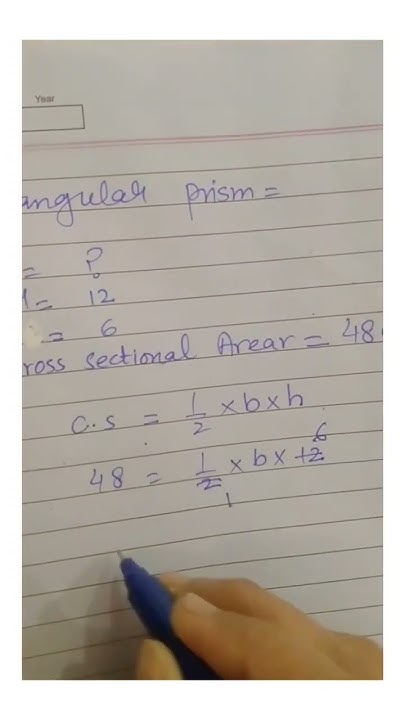 Year
angular prism =
= ?
= 12
= 6
ross sectional Arear = 48
C.S = 1/2 × b × h
6
48 = 1/2 × b × 12
1